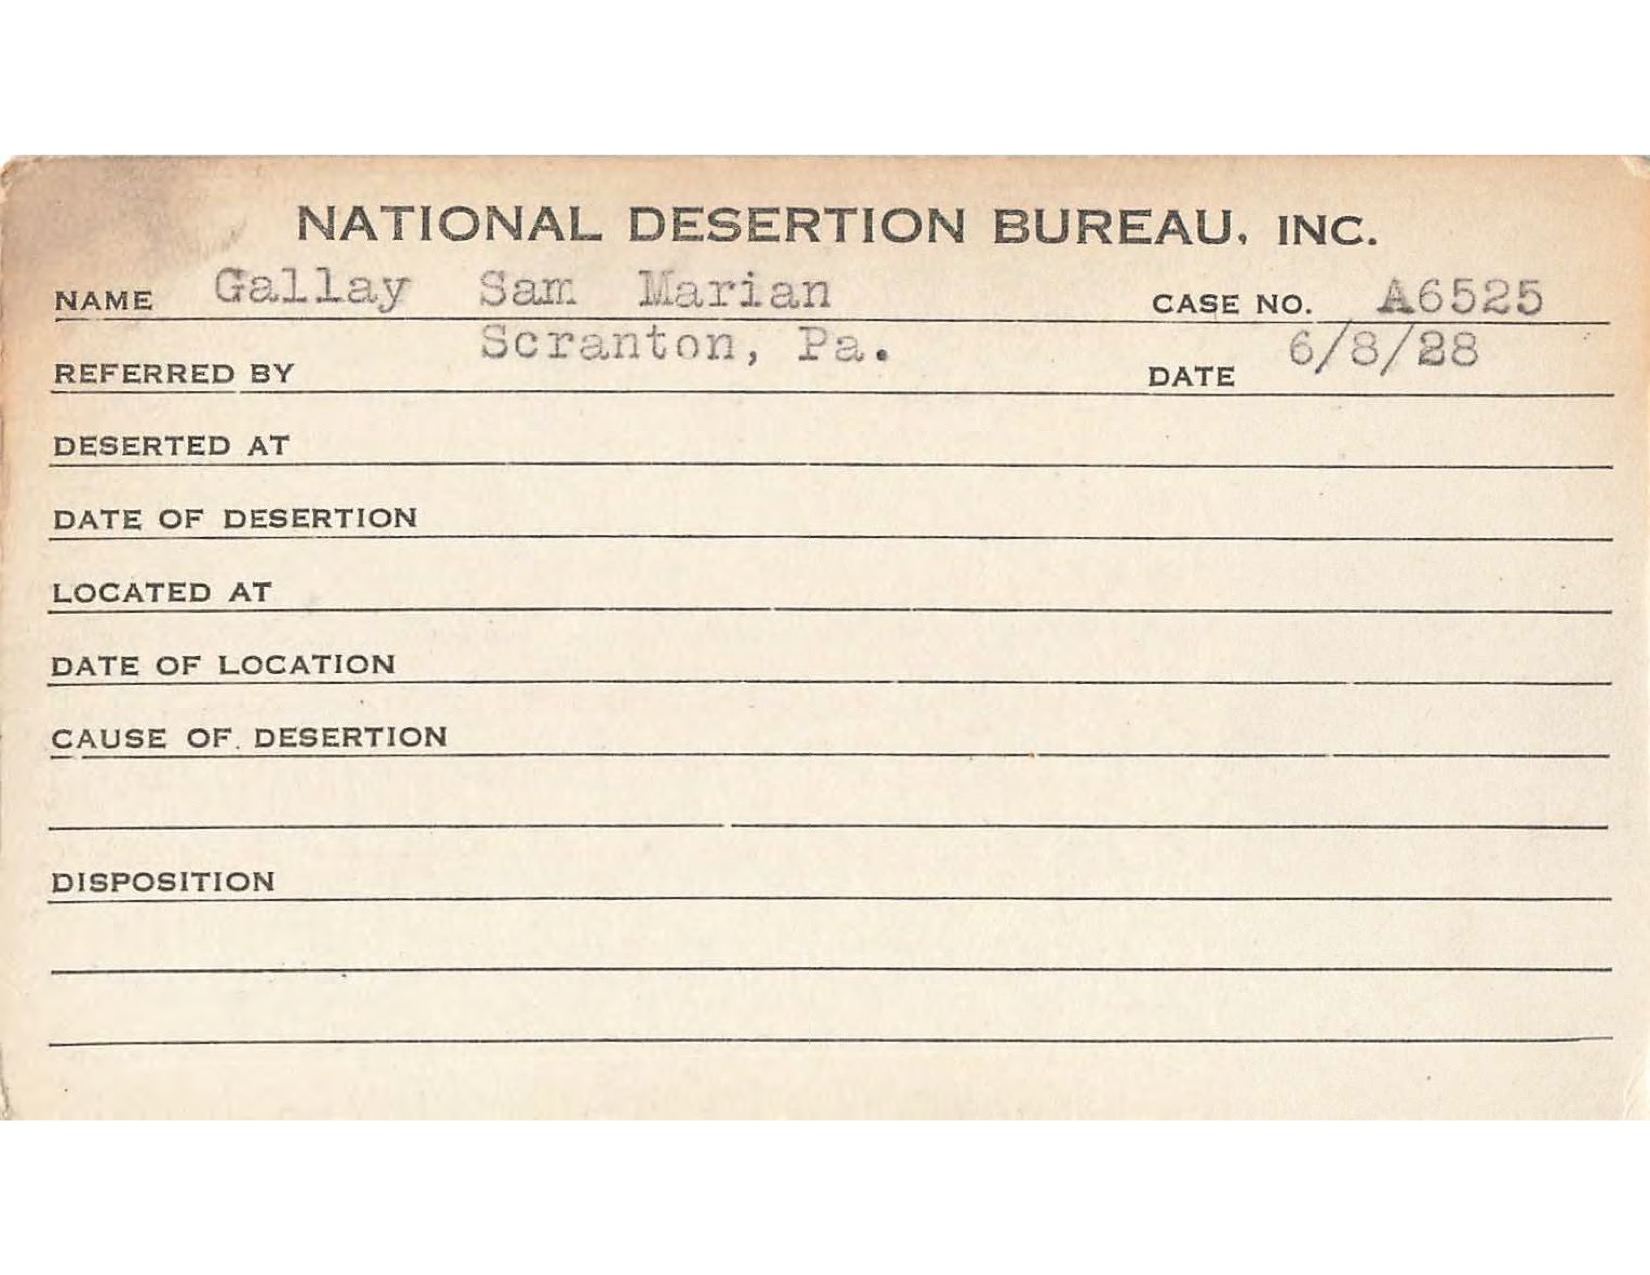 NATIONAL DESERTION BUREAU, INC.
NAME Gallay Sam Marian CASE NO. A6525
REFERRED BY Scranton, Pa. DATE 6/8/28
DESERTED AT
DATE OF DESERTION
LOCATED AT
DATE OF LOCATION
CAUSE OF DESERTION
DISPOSITION